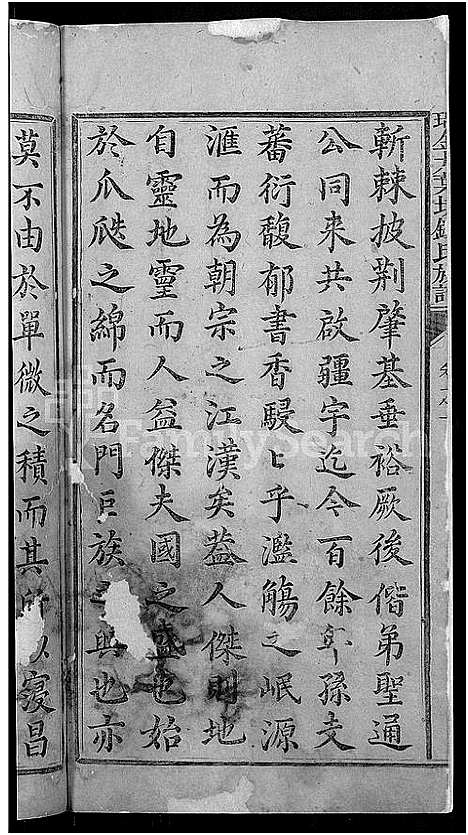 斬棘披荆肇基垂裕厥後偕弟聖通
公同来共啟疆宇迄今百餘年孫支
蕃衍馥郁書香駸匕乎濫觴之岷源
滙而為朝宗之江漢矣葢人傑則地
自靈地靈而人益傑夫國之盛也始
於瓜瓞之綿而名門巨族之興也亦
莫不由於單微之積而其所以寖昌
FamilySearch